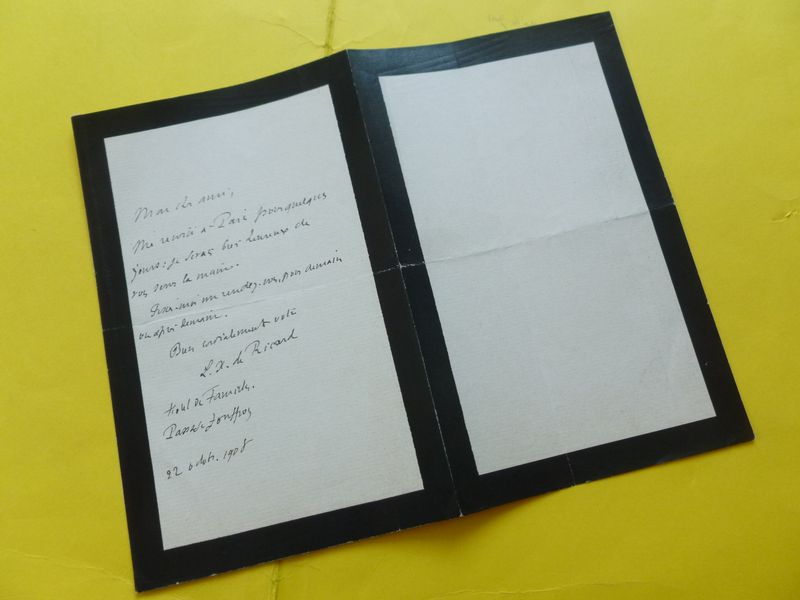 Mon cher ami,
Me revoici à Paris pour quelques
jours : je serais bien heureux de
vous serrer la main.
Fixez-moi un rendez-vous, pour demain
ou après-demain.
Bien cordialement votre
L. X. de Ricard
Hôtel des Familles.
Passage Jouffroy
22 octob. 1908